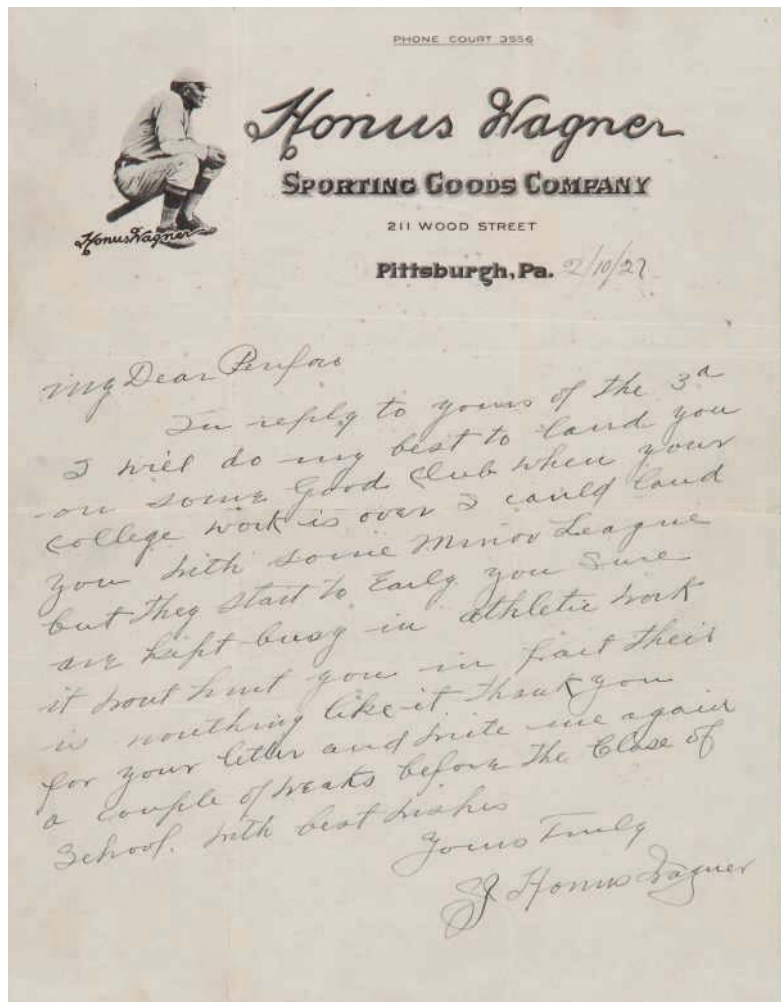 PHONE COURT 3556
Honus Wagner
SPORTING GOODS COMPANY
211 WOOD STREET
Honus Wagner
Pittsburgh, Pa. 2/10/27
My Dear
In reply to yours of the 3d
I will do my best to land you
on some Good Club when your
College work is over I could land
you with some Minor League
but they start to Early you Sure
are kept busy in athletic work
it wont hurt you in fact their
is nouthing like it thank you
for your letter and write me again
a couple of weaks before the Close of
School. With best wishes
Yours Truly
Honus Wagner